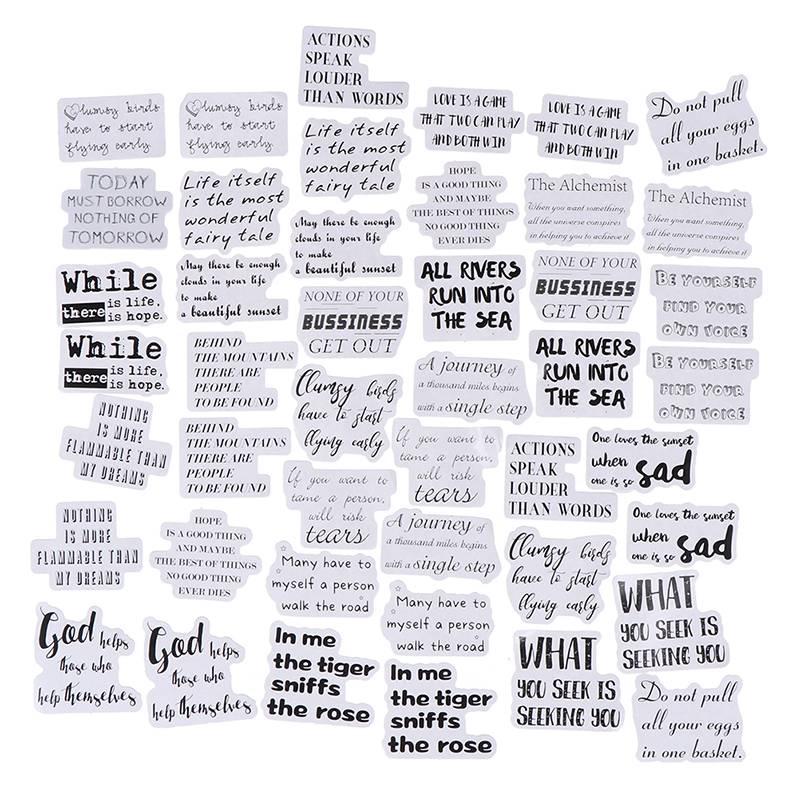 ACTIONS
SPEAK
LOUDER
THAN WORDS
Clumsy birds
have to start
flying early.
Clumsy birds
have to start
flying early.
LOVE IS A GAME
THAT TWO CAN PLAY
AND BOTH WIN
LOVE IS A GAME
THAT TWO CAN PLAY
AND BOTH WIN
Do not pull
all your eggs
in one basket.
Life itself
is the most
wonderful
fairy tale
TODAY
MUST BORROW
NOTHING OF
TOMORROW
Life itself
is the most
wonderful
fairy tale
HOPE
IS A GOOD THING
AND MAYBE
THE BEST OF THINGS
NO GOOD THING
EVER DIES
The Alchemist
When you want something,
all the universe conspires
in helping you to achieve it
The Alchemist
When you want something,
all the universe conspires
in helping you to achieve it
May there be enough
clouds in your life
to make
a beautiful sunset
While
there is life.
is hope.
May there be enough
clouds in your life
to make
a beautiful sunset
NONE OF YOUR
BUSSINESS
GET OUT
ALL RIVERS
RUN INTO
THE SEA
NONE OF YOUR
BUSSINESS
GET OUT
BE YOURSELF
FIND YOUR
OWN VOICE
While
there is life.
is hope.
BEHIND
THE MOUNTAINS
THERE ARE
PEOPLE
TO BE FOUND
ALL RIVERS
RUN INTO
THE SEA
BE YOURSELF
FIND YOUR
OWN VOICE
Clumsy birds
have to start
llying early
A journey of
a thousand miles begins
with a single step
NOTHING
IS MORE
FLAMMABLE THAN
MY DREAMS
BEHIND
THE MOUNTAINS
THERE ARE
PEOPLE
TO BE FOUND
If you want to
tame a person,
will risk
tears
ACTIONS
SPEAK
LOUDER
THAN WORDS
One loves the sunset
when
one is so sad
If you want to
tame a person,
will risk
tears
NOTHING
IS MORE
FLAMMABLE THAN
MY DREAMS
HOPE
IS A GOOD THING
AND MAYBE
THE BEST OF THINGS
NO GOOD THING
EVER DIES
A journey of
a thousand miles begins
with a single step
One loves the sunset
when
one is so sad
Clumsy birds
have to start
llying early
Many have to
myself a person
walk the road
Many have to
myself a person
walk the road
WHAT
YOU SEEK IS
SEEKING YOU
God helps
those who
help themselves
God helps
those who
help themselves
In me
the tiger
sniffs
the rose
In me
the tiger
sniffs
the rose
WHAT
YOU SEEK IS
SEEKING YOU
Do not pull
all your eggs
in one basket.